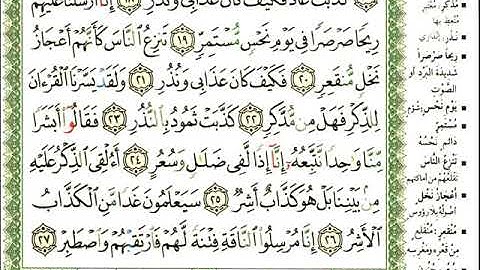 كَذَّبَتْ عَادٌ فَكَيْفَ كَانَ عَذَابِى وَنُذُرِ ١٨ إِنَّآ أَرْسَلْنَا عَلَيْهِمْ
رِيحًا صَرْصَرًا فِى يَوْمِ نَحْسٍ مُّسْتَمِرٍّ ١٩ تَنزِعُ ٱلنَّاسَ كَأَنَّهُمْ أَعْجَازُ
نَخْلٍ مُّنقَعِرٍ ٢٠ فَكَيْفَ كَانَ عَذَابِى وَنُذُرِ ٢١ وَلَقَدْ يَسَّرْنَا ٱلْقُرْءَانَ
لِلذِّكْرِ فَهَلْ مِن مُّدَّكِرٍ ٢٢ كَذَّبَتْ ثَمُودُ بِٱلنُّذُرِ ٢٣ فَقَالُوٓا۟ أَبَشَرًا
مِّنَّا وَٰحِدًا نَّتَّبِعُهُۥٓ إِنَّآ إِذًا لَّفِى ضَلَٰلٍ وَسُعُرٍ ٢٤ أَءُلْقِىَ ٱلذِّكْرُ عَلَيْهِ
مِنۢ بَيْنِنَا بَلْ هُوَ كَذَّابٌ أَشِرٌ ٢٥ سَيَعْلَمُونَ غَدًا مَّنِ ٱلْكَذَّابُ
ٱلْأَشِرُ ٢٦ إِنَّا مُرْسِلُوا۟ ٱلنَّاقَةِ فِتْنَةً لَّهُمْ فَٱرْتَقِبْهُمْ وَٱصْطَبِرْ ٢٧
مُتَّعِظٍ بِهَا
رِيحًا صَرْصَرًا
شَدِيدَةَ البَرْدِ أو
الصَّوْتِ
يَوْمِ نَحْسٍ
مُسْتَمِرٍّ
دائم نَحْسُهُ
تَنزِعُ النَّاسَ
تَقْلَعُهُمْ من أماكنهم
أَعْجَازُ نَخْلٍ
أصُولُهُ بلا رؤوس
مُنقَعِرٍ: مُنْقَلِعٍ
عن قعره ومغرسه